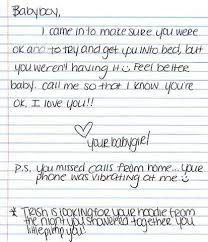 Babyboy,
I came in to make sure you were
OK and to try and get you into bed, but
you weren't having it :( Feel better
baby. call me so that I know you're
OK. I love you!!
♡ your babygirl
P.S. you missed calls from home... your
phone was vibrating at me :)
* Trish is looking for your hoodie from
the night you showered together you
little pimp you!